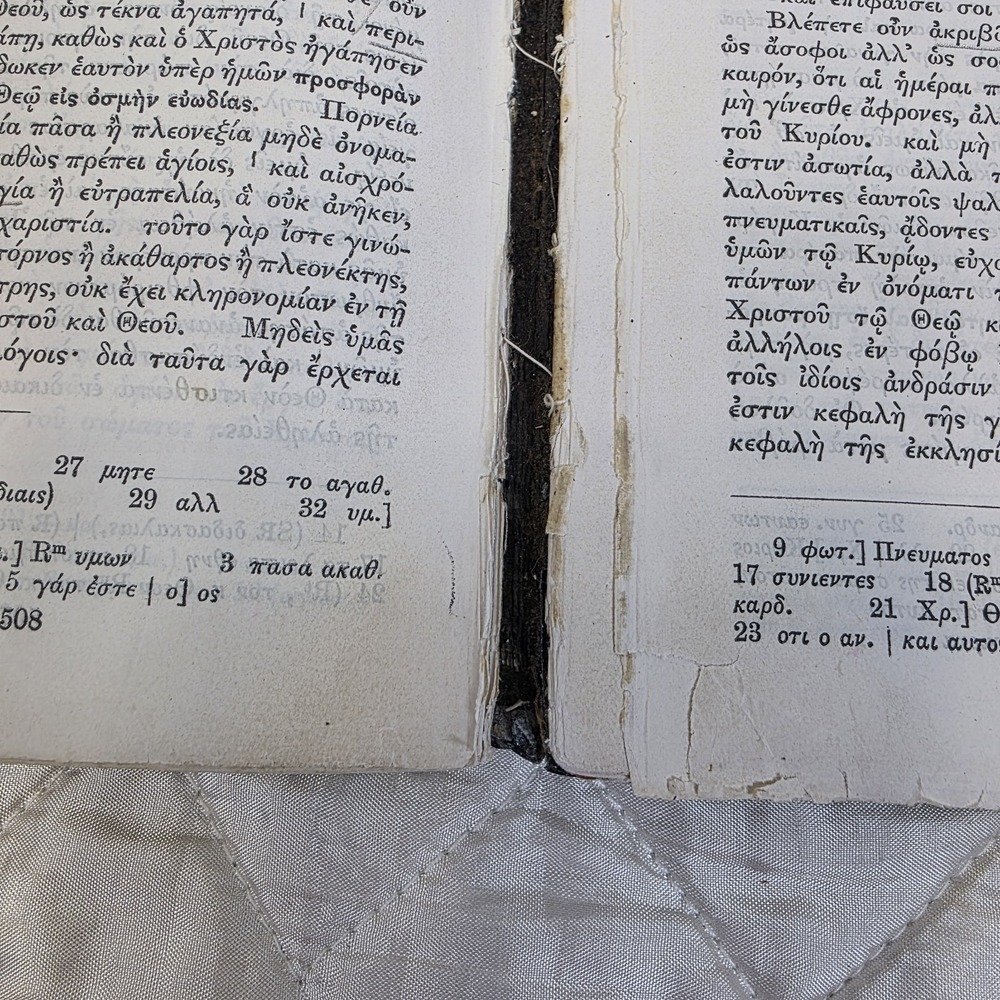 Θεοῦ, ὡς τέκνα ἀγαπητά, | καὶ περι-
άπῃ, καθὼς καὶ ὁ Χριστὸς ἠγάπησεν
δωκεν ἑαυτὸν ὑπὲρ ἡμῶν προσφορὰν
Θεῷ εἰς ὀσμὴν εὐωδίας. Πορνεία
ία πᾶσα ἢ πλεονεξία μηδὲ ὀνομα-
αθὼς πρέπει ἁγίοις, | καὶ αἰσχρό-
γία ἢ εὐτραπελία, ἃ οὐκ ἀνῆκεν,
χαριστία. τοῦτο γὰρ ἴστε γινώ-
πόρνος ἢ ἀκάθαρτος ἢ πλεονέκτης,
τρης, οὐκ ἔχει κληρονομίαν ἐν τῇ
στοῦ καὶ Θεοῦ. Μηδεὶς ὑμᾶς
λόγοις· διὰ ταῦτα γὰρ ἔρχεται
27 μητε 28 το αγαθ.
διαις) 29 αλλ 32 υμ.]
.] Rᵐ υμων 3 πασα ακαθ.
5 γάρ ἐστε | ο] ος
508
Βλέπετε οὖν ἀκριβῶ
ὡς ἄσοφοι ἀλλ’ ὡς σο
καιρόν, ὅτι αἱ ἡμέραι π
μὴ γίνεσθε ἄφρονες, ἀλ
τοῦ Κυρίου. καὶ μὴ
ἐστιν ἀσωτία, ἀλλὰ
λαλοῦντες ἑαυτοῖς ψαλ
πνευματικαῖς, ᾄδοντες
ὑμῶν τῷ Κυρίῳ, εὐχα
πάντων ἐν ὀνόματι τ
Χριστοῦ τῷ Θεῷ κ
ἀλλήλοις ἐν φόβῳ
τοῖς ἰδίοις ἀνδράσιν
ἐστιν κεφαλὴ τῆς γ
κεφαλὴ τῆς ἐκκλησί
9 φωτ.] Πνευματος
17 συνιεντες 18 (Rᵐ
καρδ. 21 Χρ.] Θ
23 οτι ο αν. | και αυτο